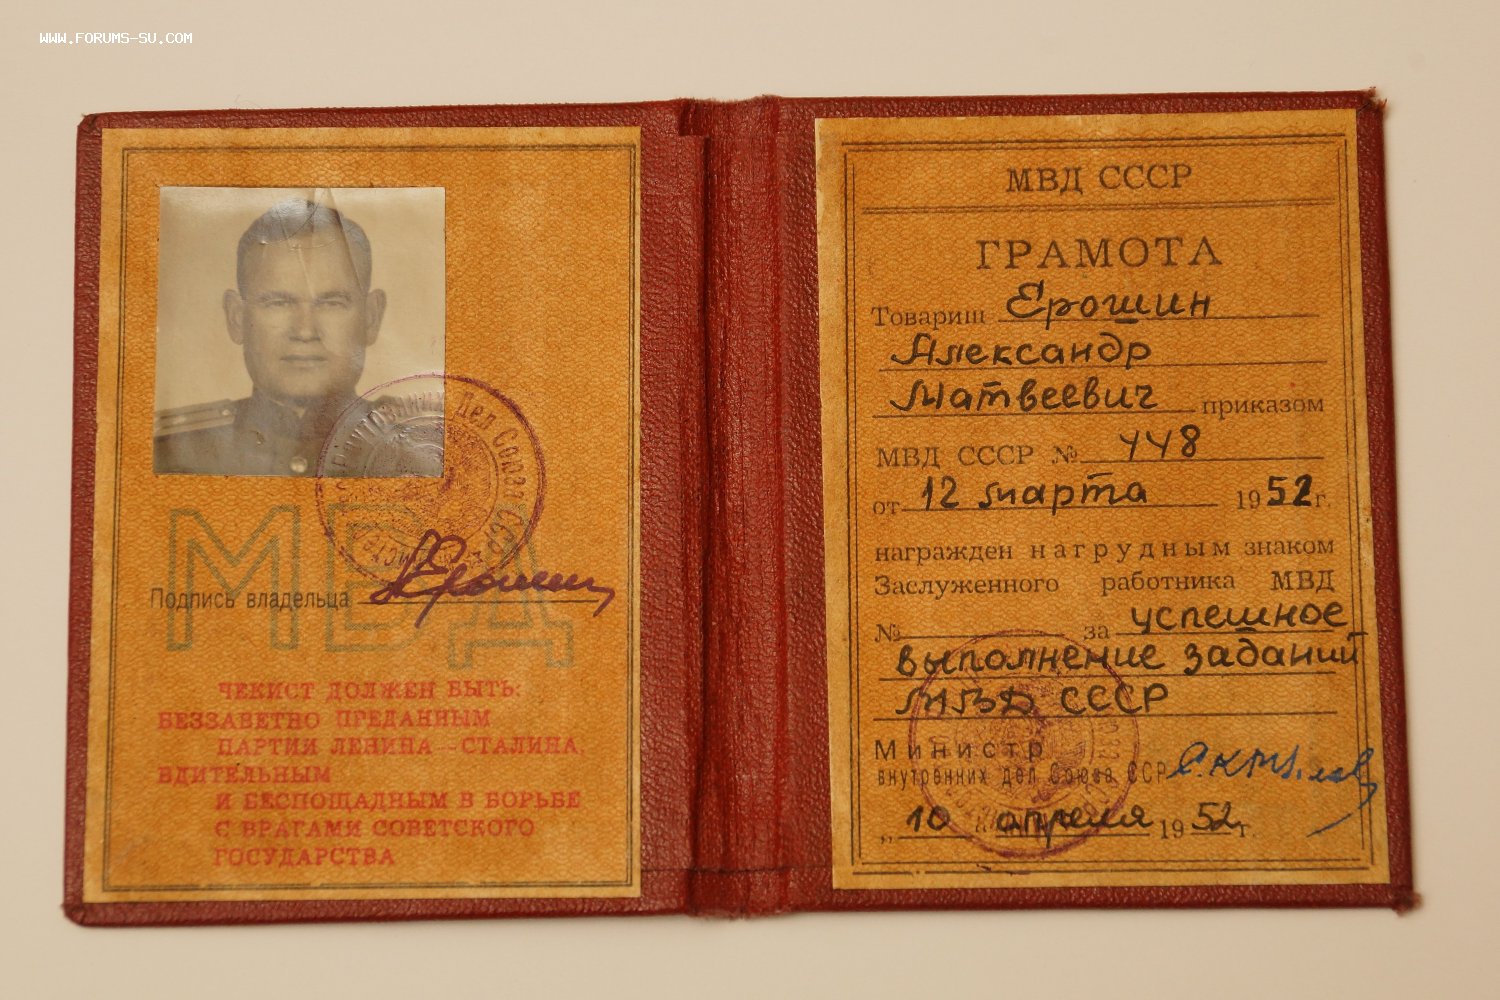 WWW.FORUMS-SU.COM
внутренних Дел Союза ССР
МВД
Подпись владельца Ерошин
ЧЕКИСТ ДОЛЖЕН БЫТЬ:
БЕЗЗАВЕТНО ПРЕДАННЫМ
ПАРТИИ ЛЕНИНА—СТАЛИНА,
БДИТЕЛЬНЫМ
И БЕСПОЩАДНЫМ В БОРЬБЕ
С ВРАГАМИ СОВЕТСКОГО
ГОСУДАРСТВА
МВД СССР
ГРАМОТА
Товарищ Ерошин
Александр
Матвеевич приказом
МВД СССР № 448
от 12 марта 1952 г.
награжден нагрудным знаком
Заслуженного работника МВД
№ за успешное
выполнение заданий
МВД СССР
Министр
внутренних дел Союза ССР С. Круглов
„ 10 апреля 1952 г.